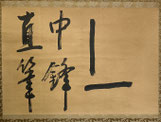 中鋒
直筆